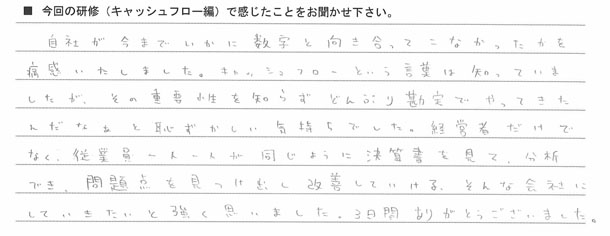 ■ 今回の研修（キャッシュフロー編）で感じたことをお聞かせ下さい。
自社が今までいかに数字と向き合ってこなかったかを
痛感いたしました。キャッシュフローという言葉は知っていま
したが、その重要性を知らずどんぶり勘定でやってきた
んだなぁと恥ずかしい気持ちでした。経営者だけで
なく、従業員一人一人が同じように決算書を見て、分析
でき、問題点を見つけ出し改善していける、そんな会社に
していきたいと強く思いました。3日間ありがとうございました。